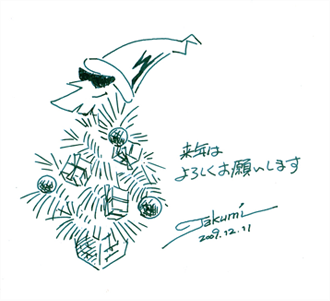 来年は
よろしくお願いします
Takumi
2009.12.11